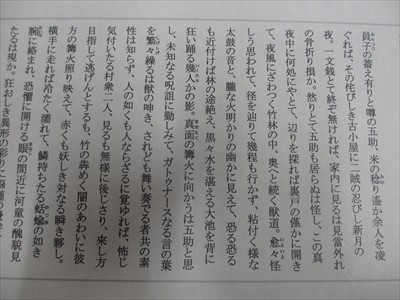 員子の蓄え有りと噂の五助、米の秤り遙か余人を凌
ぐれば、その侘びしき古小屋に二賊の忍びし新月の
夜。一文銭とて終ぞ無ければ、家内に見るは見当外れ
の骨折り損か。然りとて五助も居らぬは怪し、この真
夜中に何処にやとて、辺りを探れば裏戸の僅かに開き
て、夜風にざわつく竹林の中、奥へと続く獣道。愈々怪
しう思われて、径を辿りて幾程も行かず、粘付く様な
太鼓の音と、朧な火明かりの幽かに見えて、恐る恐る
も近付けば林の途絶え、黒々水を湛える大池を背に
狂い踊る幾人かの影。真面の篝火に向からは五助と思
し、未知なる呪詛に勤しみて、ガトゥナースなる言の葉
を繁々繰るは獣の呻き、されども舞い奏でる者共の素
性は知らず、人の如くも人ならざるに覚ゆれば、怖じ
気付いたる村衆二人、見るも無様に後じさり、来し方
目指して逃げんとするも、竹の犇めく闇のあわいに彼
方の篝火照り映えて、赤くも妖しき対なる瞬き夥し。
横手に走れば冷たく濡れて、鱗持ちたる蛞蝓の如き
腕に絡まれ、恐懼に開ける眼の間近に河童の醜貌見
たるは現か。狂ほしき異形の彩りに